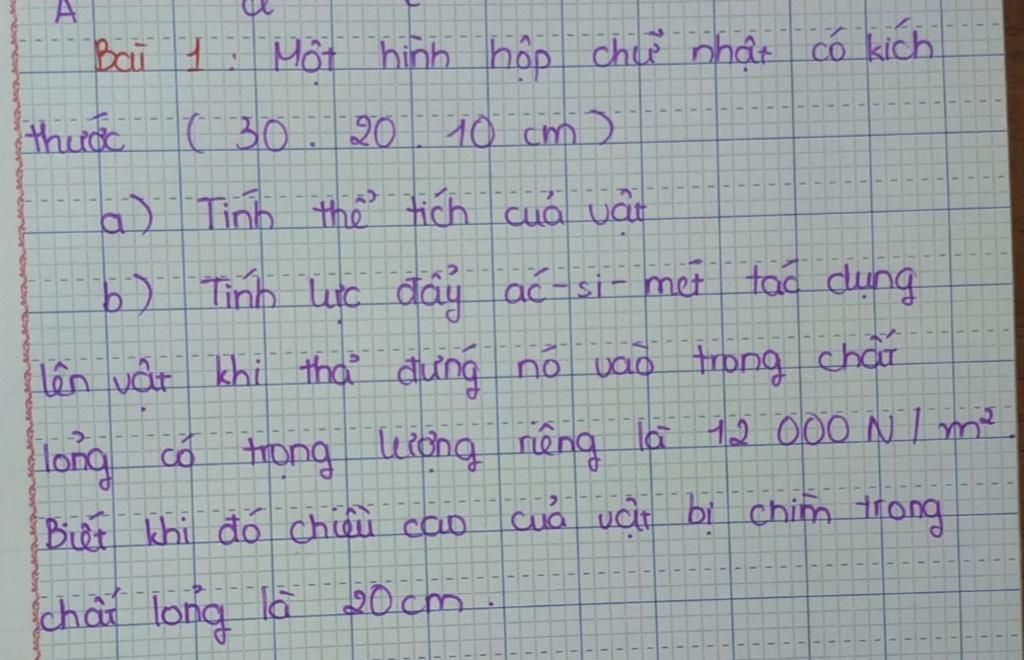 Bài 1 : Một hình hộp chữ nhật có kích
thước ( 30 . 20 . 10 cm )
a) Tính thể tích của vật
b) Tính lực đẩy ác-si-mét tác dụng
lên vật khi thả đứng nó vào trong chất
lỏng có trọng lượng riêng là 12 000 N/m².
Biết khi đó chiều cao của vật bị chìm trong
chất lỏng là 20cm .